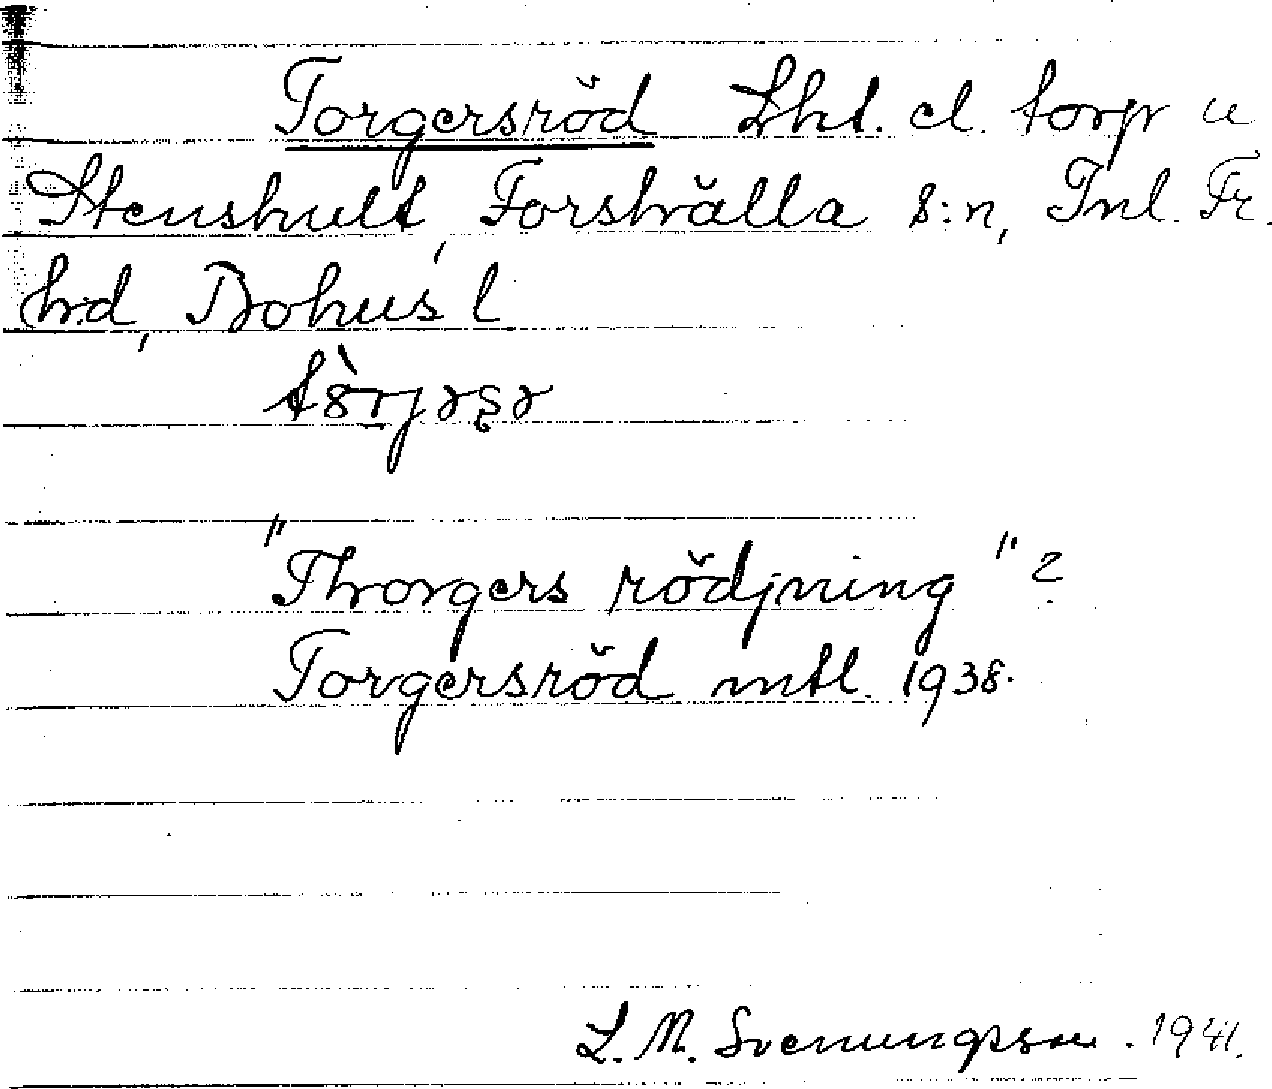 Torgersröd Lht. el. torp u
Stenshult, Forshälla s:n, Inl. Fr.
hd, Bohus l
"Thorgers rödjning" ?
Torgersröd mtl. 1938.
L. M. Svenungsson. 1941.